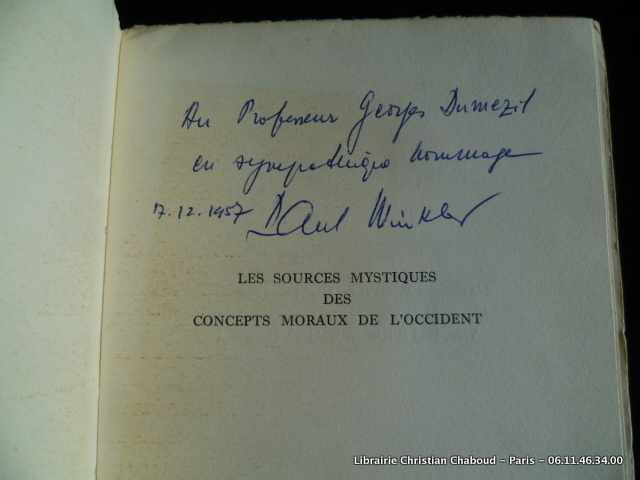 Au Professeur Georges Dumezil
en sympathique hommage
17.12.1957 Paul Winkler
LES SOURCES MYSTIQUES
DES
CONCEPTS MORAUX DE L'OCCIDENT
Librairie Christian Chaboud - Paris - 06.11.46.34.00